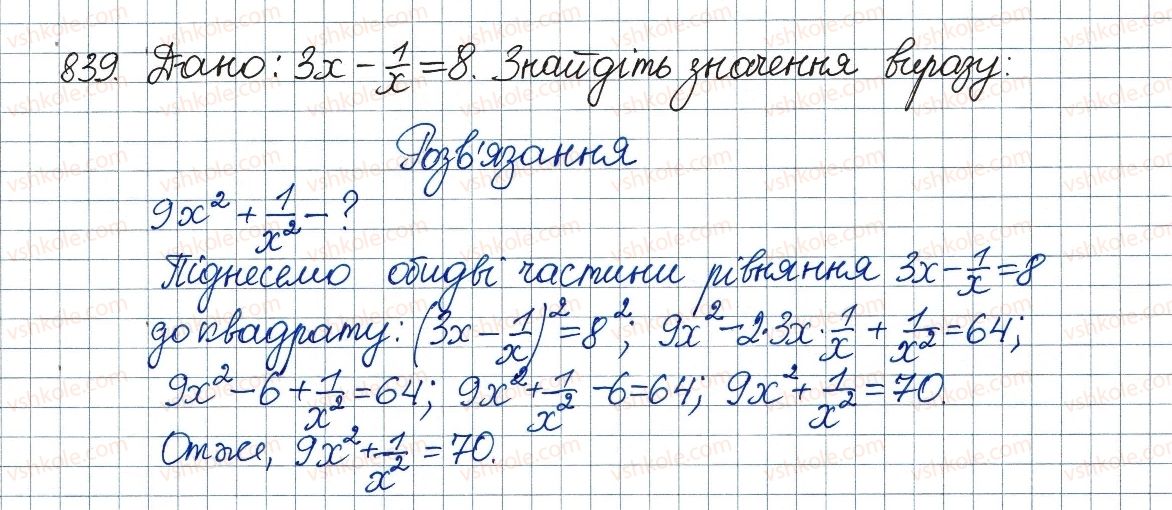 839. Дано: 3x - 1/x = 8. Знайдіть значення виразу:
Розв'язання
9x² + 1/x² - ?
Піднесемо обидві частини рівняння 3x - 1/x = 8
до квадрату: (3x - 1/x)² = 8²; 9x² - 2·3x·1/x + 1/x² = 64;
9x² - 6 + 1/x² = 64; 9x² + 1/x² - 6 = 64; 9x² + 1/x² = 70.
Отже, 9x² + 1/x² = 70.